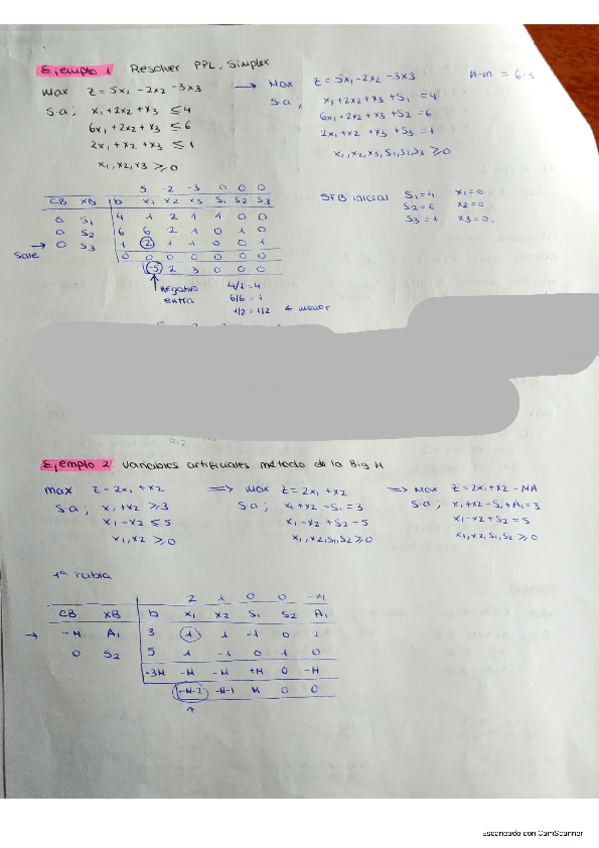 Ejemplo 1 Resolver PPL, Simplex
Max z = 5x1 - 2x2 - 3x3 → Max z = 5x1 - 2x2 - 3x3 n-m = 6-3
s.a; x1 + 2x2 + x3 ≤ 4 s.a; x1 + 2x2 + x3 + S1 = 4
6x1 + 2x2 + x3 ≤ 6 6x1 + 2x2 + x3 + S2 = 6
2x1 + x2 + x3 ≤ 1 2x1 + x2 + x3 + S3 = 1
x1, x2, x3 ≥ 0 x1, x2, x3, S1, S2, S3 ≥ 0
5 -2 -3 0 0 0
CB XB b x1 x2 x3 S1 S2 S3 SFB inicial S1 = 4 x1 = 0
0 S1 4 1 2 1 1 0 0 S2 = 6 x2 = 0
0 S2 6 6 2 1 0 1 0 S3 = 1 x3 = 0
→ 0 S3 1 2 1 1 0 0 1
Sale 0 0 0 0 0 0 0
-5 2 3 0 0 0
negativo 4/1 = 4
entra 6/6 = 1
1/2 = 1/2 ← menor
Ejemplo 2 Variables artificiales método de la Big M
max z = 2x1 + x2 ⇒ max z = 2x1 + x2 ⇒ Max z = 2x1 + x2 - MA
s.a; x1 + x2 ≥ 3 s.a; x1 + x2 - S1 = 3 s.a; x1 + x2 - S1 + A1 = 3
x1 - x2 ≤ 5 x1 - x2 + S2 = 5 x1 - x2 + S2 = 5
x1, x2 ≥ 0 x1, x2, S1, S2 ≥ 0 x1, x2, S1, S2 ≥ 0
1ª tabla
2 1 0 0 -M
CB XB b x1 x2 S1 S2 A1
→ -M A1 3 1 1 -1 0 1
0 S2 5 1 -1 0 1 0
-3M -M -M +M 0 -M
-M-2 -M-1 M 0 0
Escaneado con CamScanner